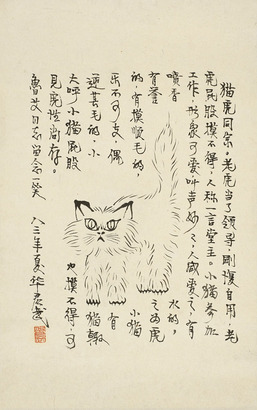 猫虎同宗。老虎当了领导，刚复自用，老
虎屁股摸不得，人称一言堂主。小猫参加
工作，形象可爱叫声妙，人咸爱之，有
喷香水的，
有誉之为虎
的，有摸顺毛的，小猫
乐不可支，偶有
逆其毛的，小猫辄
大呼小猫屁股也摸不得，可
见虎性尚存。
鲁艾同志留念一笑 八三年夏华君武